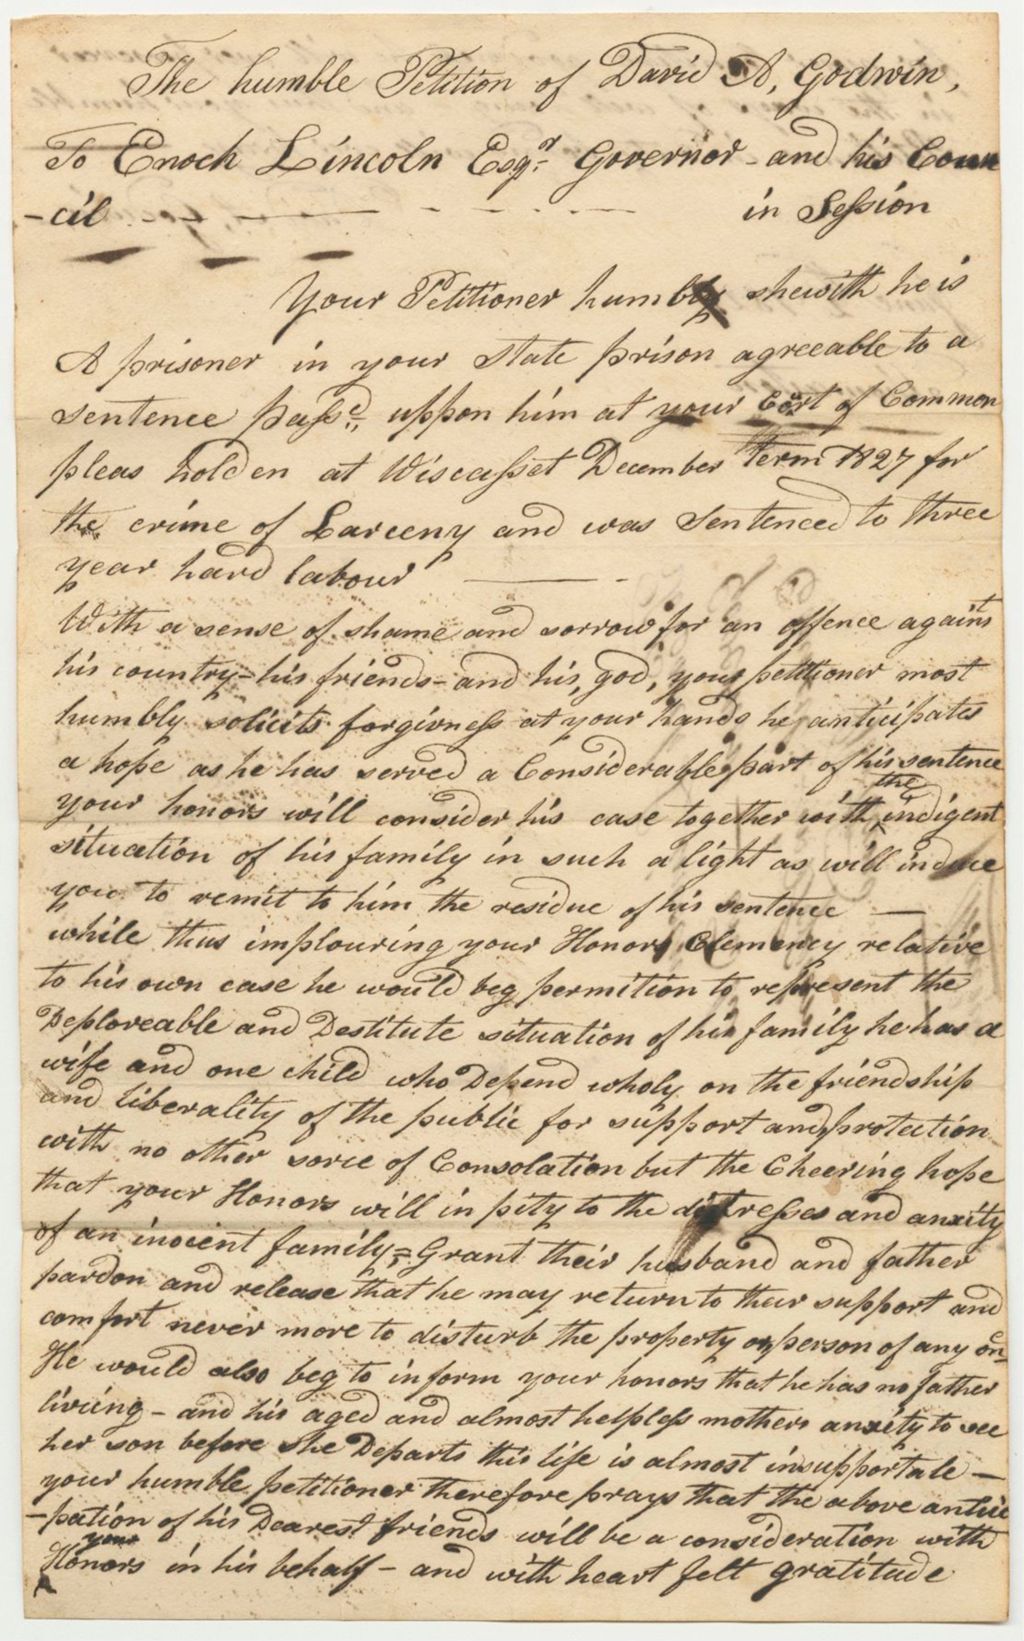 The humble Petition of David A, Godwin,
To Enoch Lincoln Esqr. Governor - and his Coun
-cil - - - - - - - in Session
Your Petitioner humbly shewith he is
A prisoner in your state prison agreeable to a
sentence passd., uppon him at your Cort of Common
pleas holden at Wiscasset December Term 1827 for
the crime of Larceny and was Sentenced to three
year hard labour —
With a sense of shame and sorrow for an offence against
his country - his friends - and his, god, your petitioner most
humbly solicits forgivness at your hands he anticipates
a hope as he has served a Considerable part of his sentence
your honors will consider his case together with the indigent
situation of his family in such a light as will induce
you to remit to him the residue of his sentence —
while thus implouring your Honors Clemency relative
to his own case he would beg permition to represent the
Deploreable and Destitute situation of his family he has a
wife and one child who Depend wholy on the friendship
and liberality of the public for support and protection
with no other sorce of Consolation but the Cheering hope
that your Honors will in pity to the distresses and anxity
of an inocent family = Grant their husband and father
pardon and release that he may return to their support and
comfort never more to disturb the property or person of any one
He would also beg to inform your honors that he has no father
living - and his aged and almost helpless mothers anxity to see
her son before she Departs this life is almost insupportale —
your humble petitioner therefore prays that the above antici
-pation of his Dearest friends will be a consideration with
your
Honors in his behalf - and with heart felt gratitude